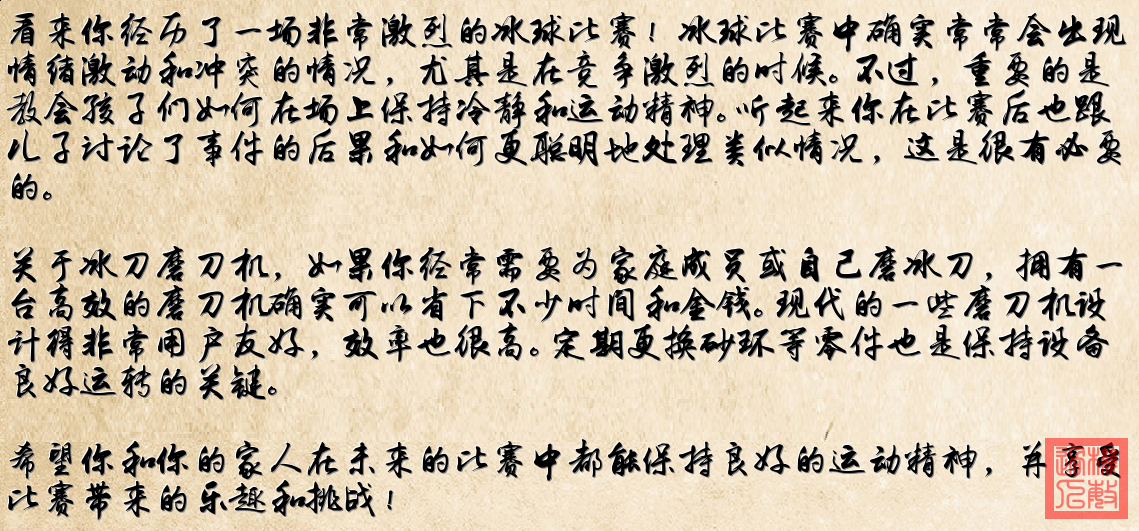 看来你经历了一场非常激烈的冰球比赛！冰球比赛中确实常常会出现
情绪激动和冲突的情况，尤其是在竞争激烈的时候。不过，重要的是
教会孩子们如何在场上保持冷静和运动精神。听起来你在比赛后也跟
儿子讨论了事件的后果和如何更聪明地处理类似情况，这是很有必要
的。
关于冰刀磨刀机，如果你经常需要为家庭成员或自己磨冰刀，拥有一
台高效的磨刀机确实可以省下不少时间和金钱。现代的一些磨刀机设
计得非常用户友好，效率也很高。定期更换砂环等零件也是保持设备
良好运转的关键。
希望你和你的家人在未来的比赛中都能保持良好的运动精神，并享受
比赛带来的乐趣和挑战！